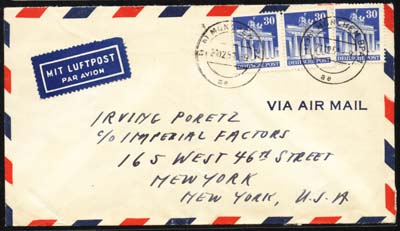 30 30 30
DEUTSCHE POST DEUTSCHE POST DEUTSCHE POST
MÜNCHEN
ae ae
MIT LUFTPOST
PAR AVION
VIA AIR MAIL
IRVING PORETZ
c/o IMPERIAL FACTORS
165 WEST 46TH STREET
NEW YORK
NEW YORK, U.S.A